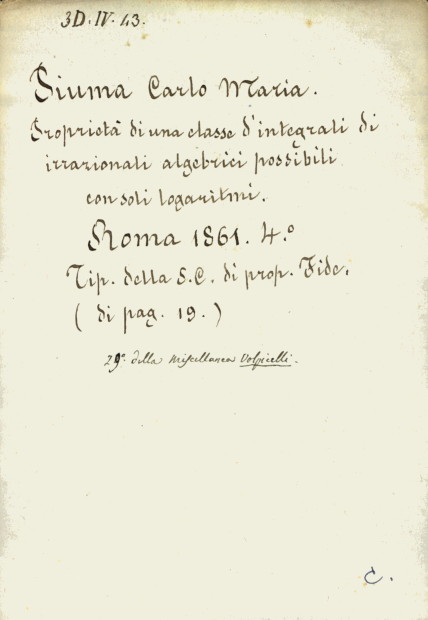 3D. IV. 43.
Piuma Carlo Maria.
Proprietà di una classe d'integrali di
irrazionali algebrici possibili
con soli logaritmi.
Roma 1861. 4.º
Tip. della S.C. di prop. Fide.
( di pag. 19. )
29ª della Miscellanea Volpicelli.
C.